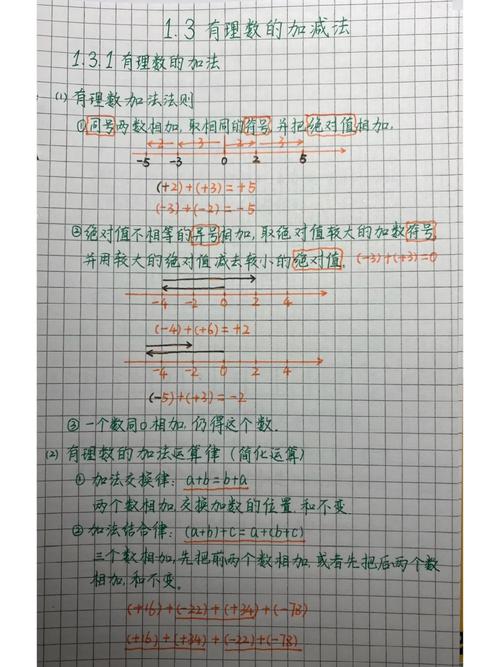 1.3 有理数的加减法
1.3.1 有理数的加法
(1) 有理数加法法则
①同号两数相加,取相同的符号,并把绝对值相加.
2 3 2 3
-5 -3 0 2 5
(+2)+(+3)=+5
(-3)+(-2)=-5
②绝对值不相等的异号相加,取绝对值较大的加数符号,
并用较大的绝对值减去较小的绝对值. (-3)+(+3)=0
-4 -2 0 2 4
(-4)+(+6)=+2
-4 -2 0 2 4
(-5)+(+3)=-2
③ 一个数同0相加,仍得这个数.
(2) 有理数的加法运算律(简化运算)
① 加法交换律: a+b=b+a
两个数相加,交换加数的位置,和不变
② 加法结合律: (a+b)+c=a+(b+c)
三个数相加,先把前两个数相加,或者先把后两个数
相加,和不变.
(+16)+(-22)+(+34)+(-78)
(+16)+(+34)+(-22)+(-78)